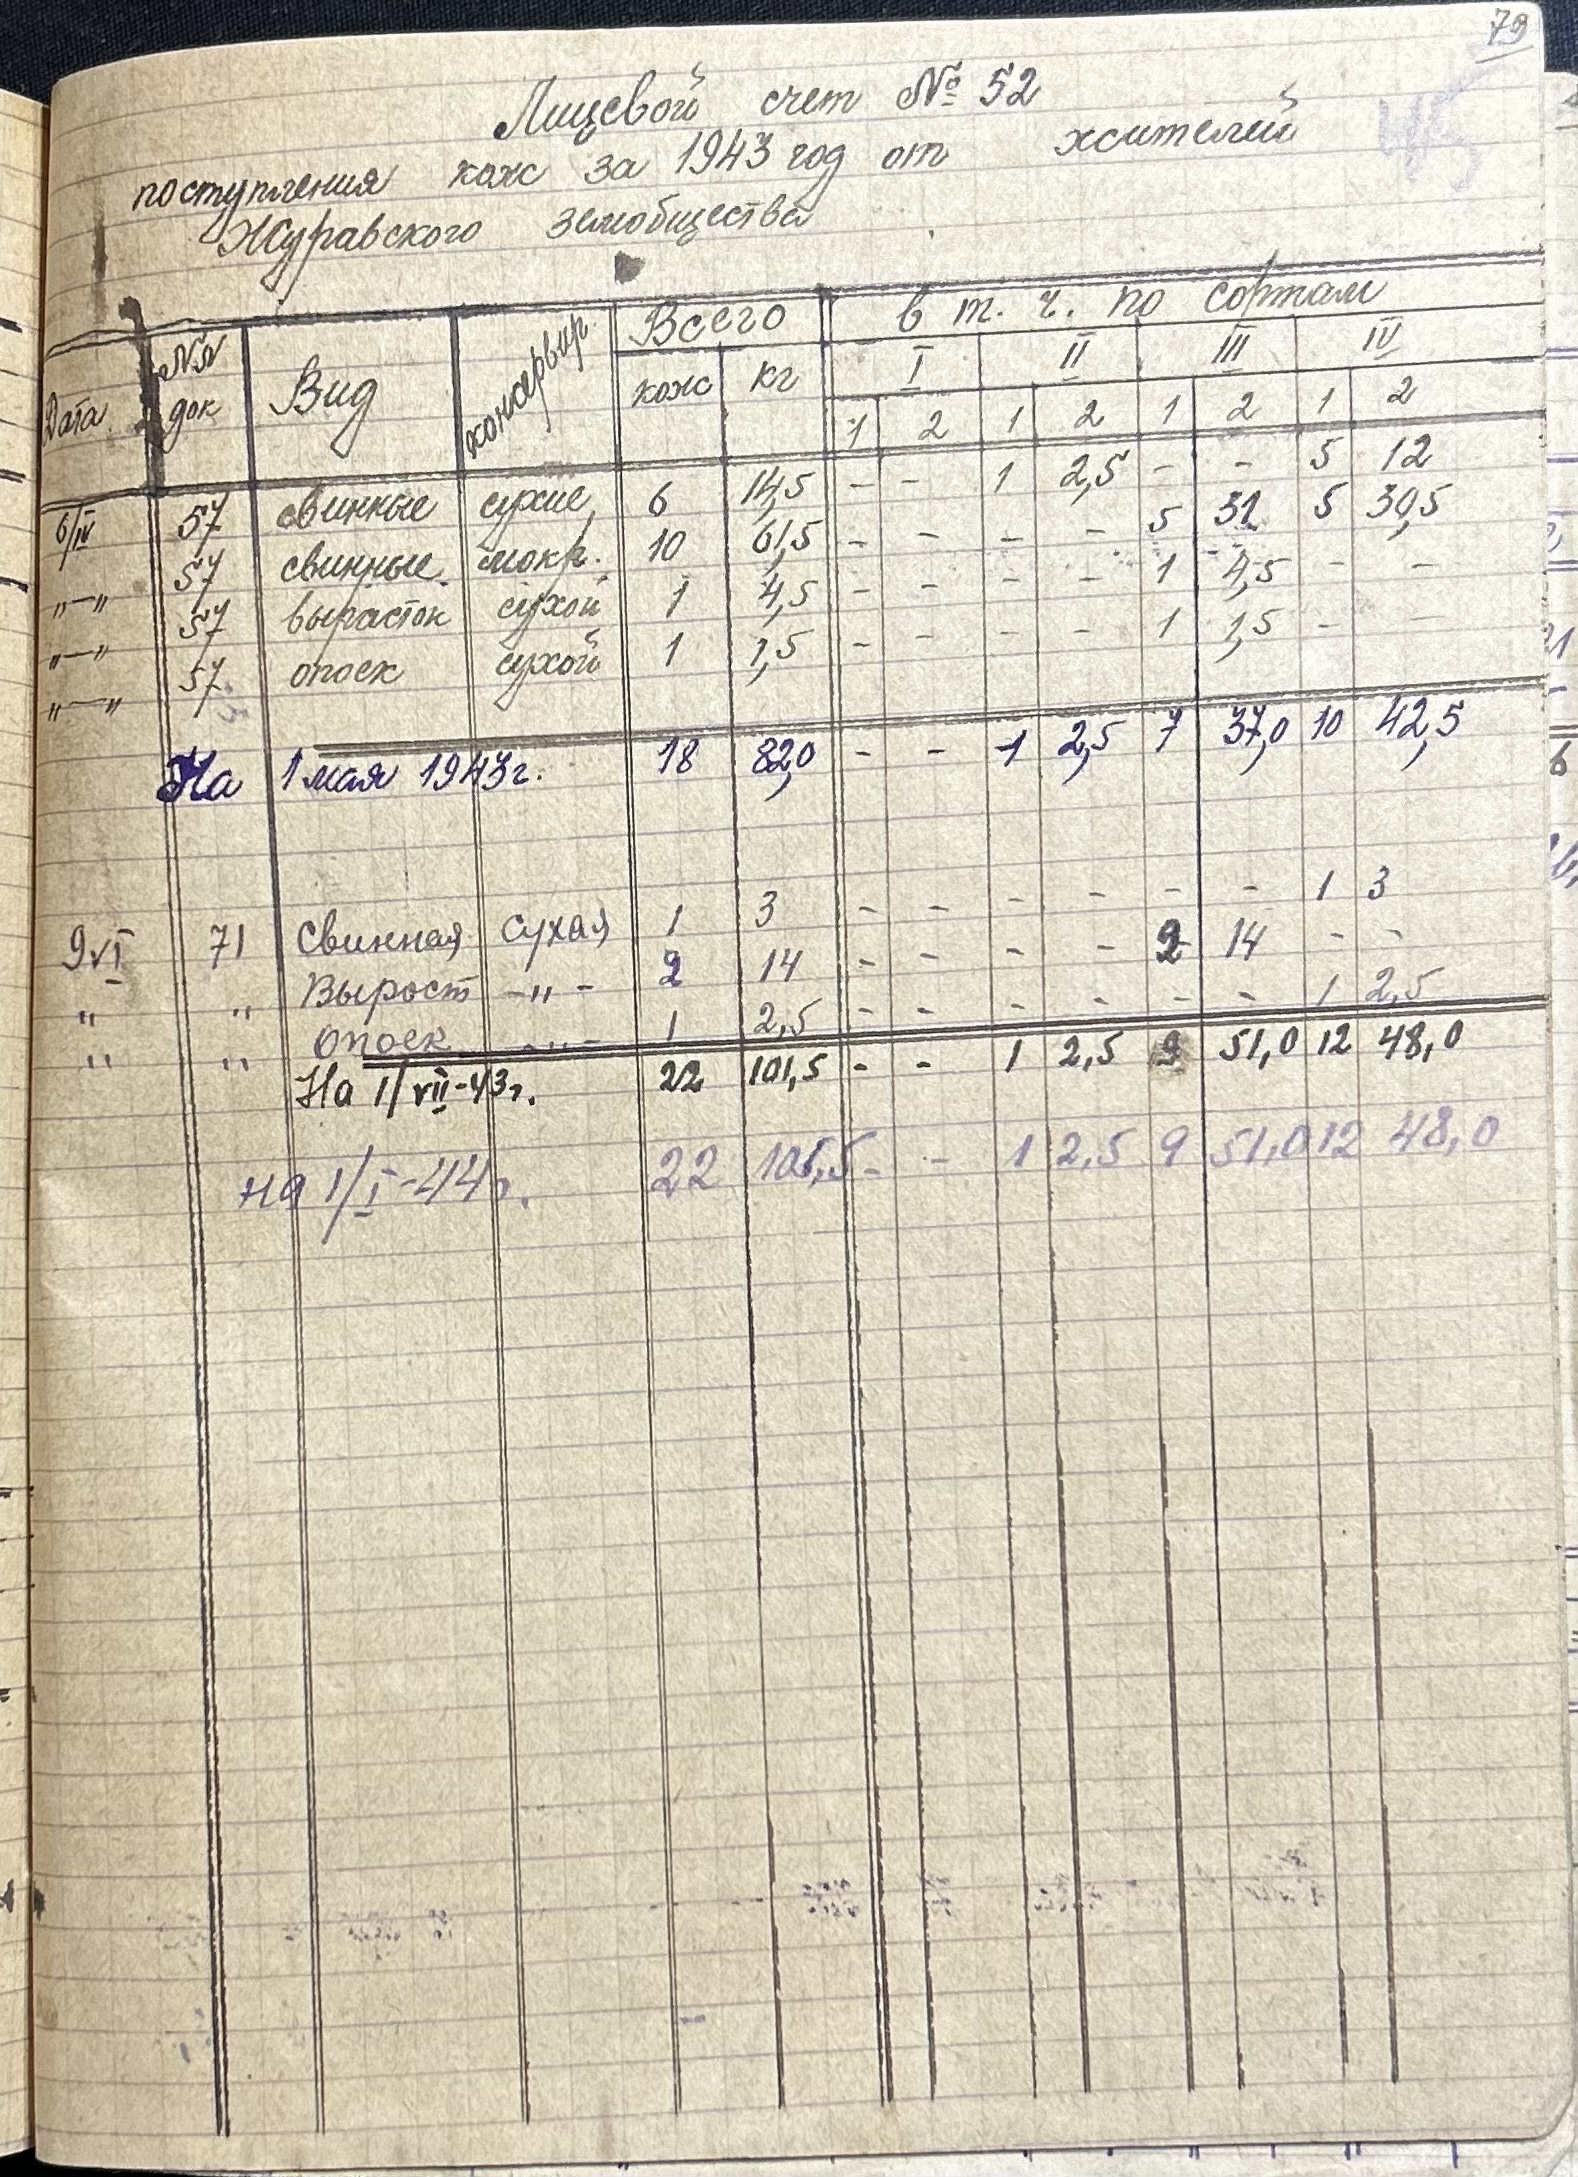 79
Лицевой счет № 52
поступления кож за 1943 год от жителей
Журавского земобщества
Дата №№ док Вид консервир. Всего в т. ч. по сортам
кож кг I II III IV
1 2 1 2 1 2 1 2
6/IV 57 свинные сухие 6 14,5 - - 1 2,5 - - 5 12
"—" 57 свинные мокр. 10 61,5 - - - - 5 31 5 30,5
"—" 57 вырасток сухой 1 4,5 - - - - 1 4,5 - -
"—" 57 опоек сухой 1 1,5 - - - - 1 1,5 - -
На 1 мая 1943 г. 18 82,0 - - 1 2,5 7 37,0 10 42,5
9 VI 71 Свинная сухая 1 3 - - - - - - 1 3
" " Вырост -"- 2 14 - - - - 2 14 - -
" " опоек -"- 1 2,5 - - - - - - 1 2,5
На 1/VII-43г. 22 101,5 - - 1 2,5 9 51,0 12 48,0
на 1/I-44г. 22 101,5 - - 1 2,5 9 51,0 12 48,0